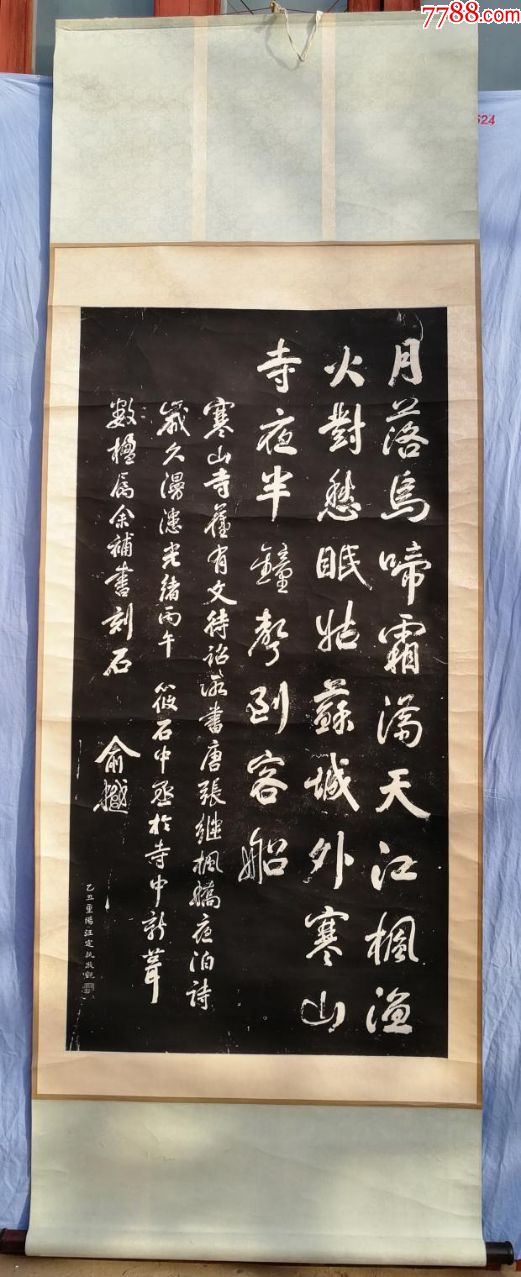 7788.com
624
月落烏啼霜滿天江楓漁
火對愁眠姑蘇城外寒山
寺夜半鐘聲到客船
寒山寺舊有文待詔所書唐張繼楓橋夜泊詩
歲久漫漶光緒丙午筱石中丞於寺中新葺
數楹屬余補書刻石
俞樾
乙丑重陽